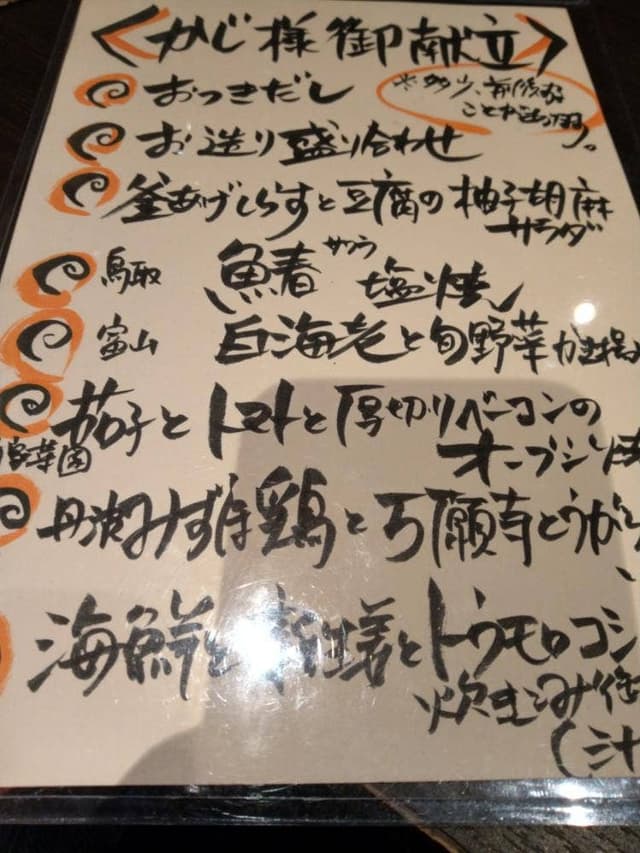 かじ様御献立
おつきだし
※多少、前後する
ことが
お造り盛り合わせ
釜あげしらすと豆腐の柚子胡麻
サラダ
鳥取 鰆 サワラ 塩焼
富山 白海老と旬野菜かき揚
茄子とトマトと厚切りベーコンの
菜園 オーブン焼
丹波みずほ鶏と万願寺とうが
海鮮と とトウモロコシ
炊きこみ
(汁